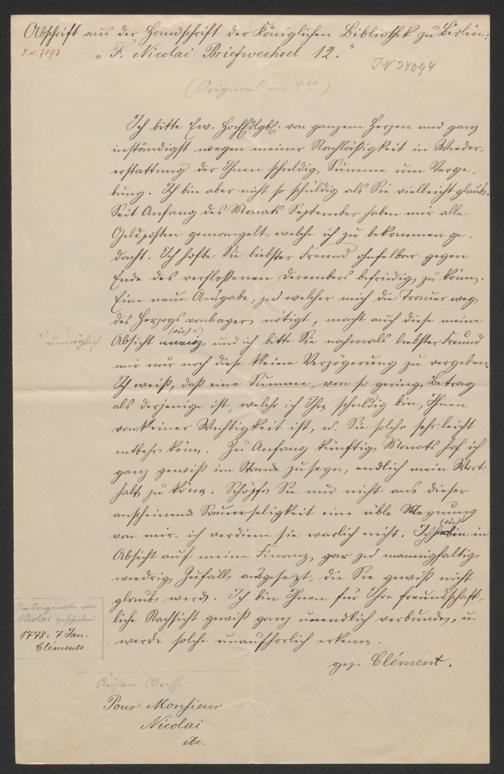 Abschrift aus der Handschrift der Königlichen Bibliothek zu Berlin:
"F. Nicolai Briefwechsel 12."
I.N. 24094
(Original in 4to)
Ich bitte Ew. HochEdlgb. von ganzem Herzen und ganz
inständigst wegen meiner Nachläßigkeit in Wieder-
erstattung der Ihnen schuldig. Summe um Verge-
bung. Ich bin aber nicht so schuldig als Sie vielleicht glaub.
Seit Anfang des Monats September haben mir alle
Geldposten gemangelt, welche ich zu bekommen ge-
dacht. Ich hofte Sie liebster Freund ohnfelbar gegen
Ende des verfloßenen Decembers befriedig. zu könn.
Eine neue Ausgabe, zu welcher mich die Trauer weg.
des Herzogs von nötigt, macht auch diese meine
Absicht und ich bitte Sie nochmals liebster Freund
unmöglich
mir nur noch diese kleine Verzögerung zu vergeben.
Ich weiß, daß eine Summe, von so gering. Betrag
als derjenige ist, welche ich Ihn. schuldig bin, Ihnen
von keiner Wichtigkeit ist, u. Sie solche sehr leicht
entbehr. könn. Zu Anfang künftig. Monats hof ich
ganz gewiß im Stande zu seyn, endlich mein Wort
halt. zu könn. Schöpf. Sie nur nicht aus dieser
anscheinend. Saumseligkeit eine üble Meynung
von mir. ich verdiene sie warlich nicht. Ich bin in
Absicht auf meine Finanz. gar zu mannigfaltig.
widrig. Zufäll. ausgesetzt, die Sie gewiß nicht
glaub. werd. Ich bin Ihnen für Ihre freundschaft-
liche Nachsicht gewiß ganz unendlich verbund., u.
werde solche unaufhörlich erkenn.
gez. Clément.
Im Originale von
Nicolai geschrieben
1778. 7 Jan.
Cléments.
Äußere Adresse:
Pour Monsieur
Nicolai
etc.